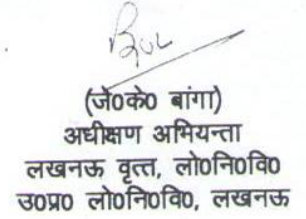 (जे०के० बांगा)
अधीक्षण अभियन्ता
लखनऊ वृत्त, लो०नि०वि०
उ०प्र० लो०नि०वि०, लखनऊ